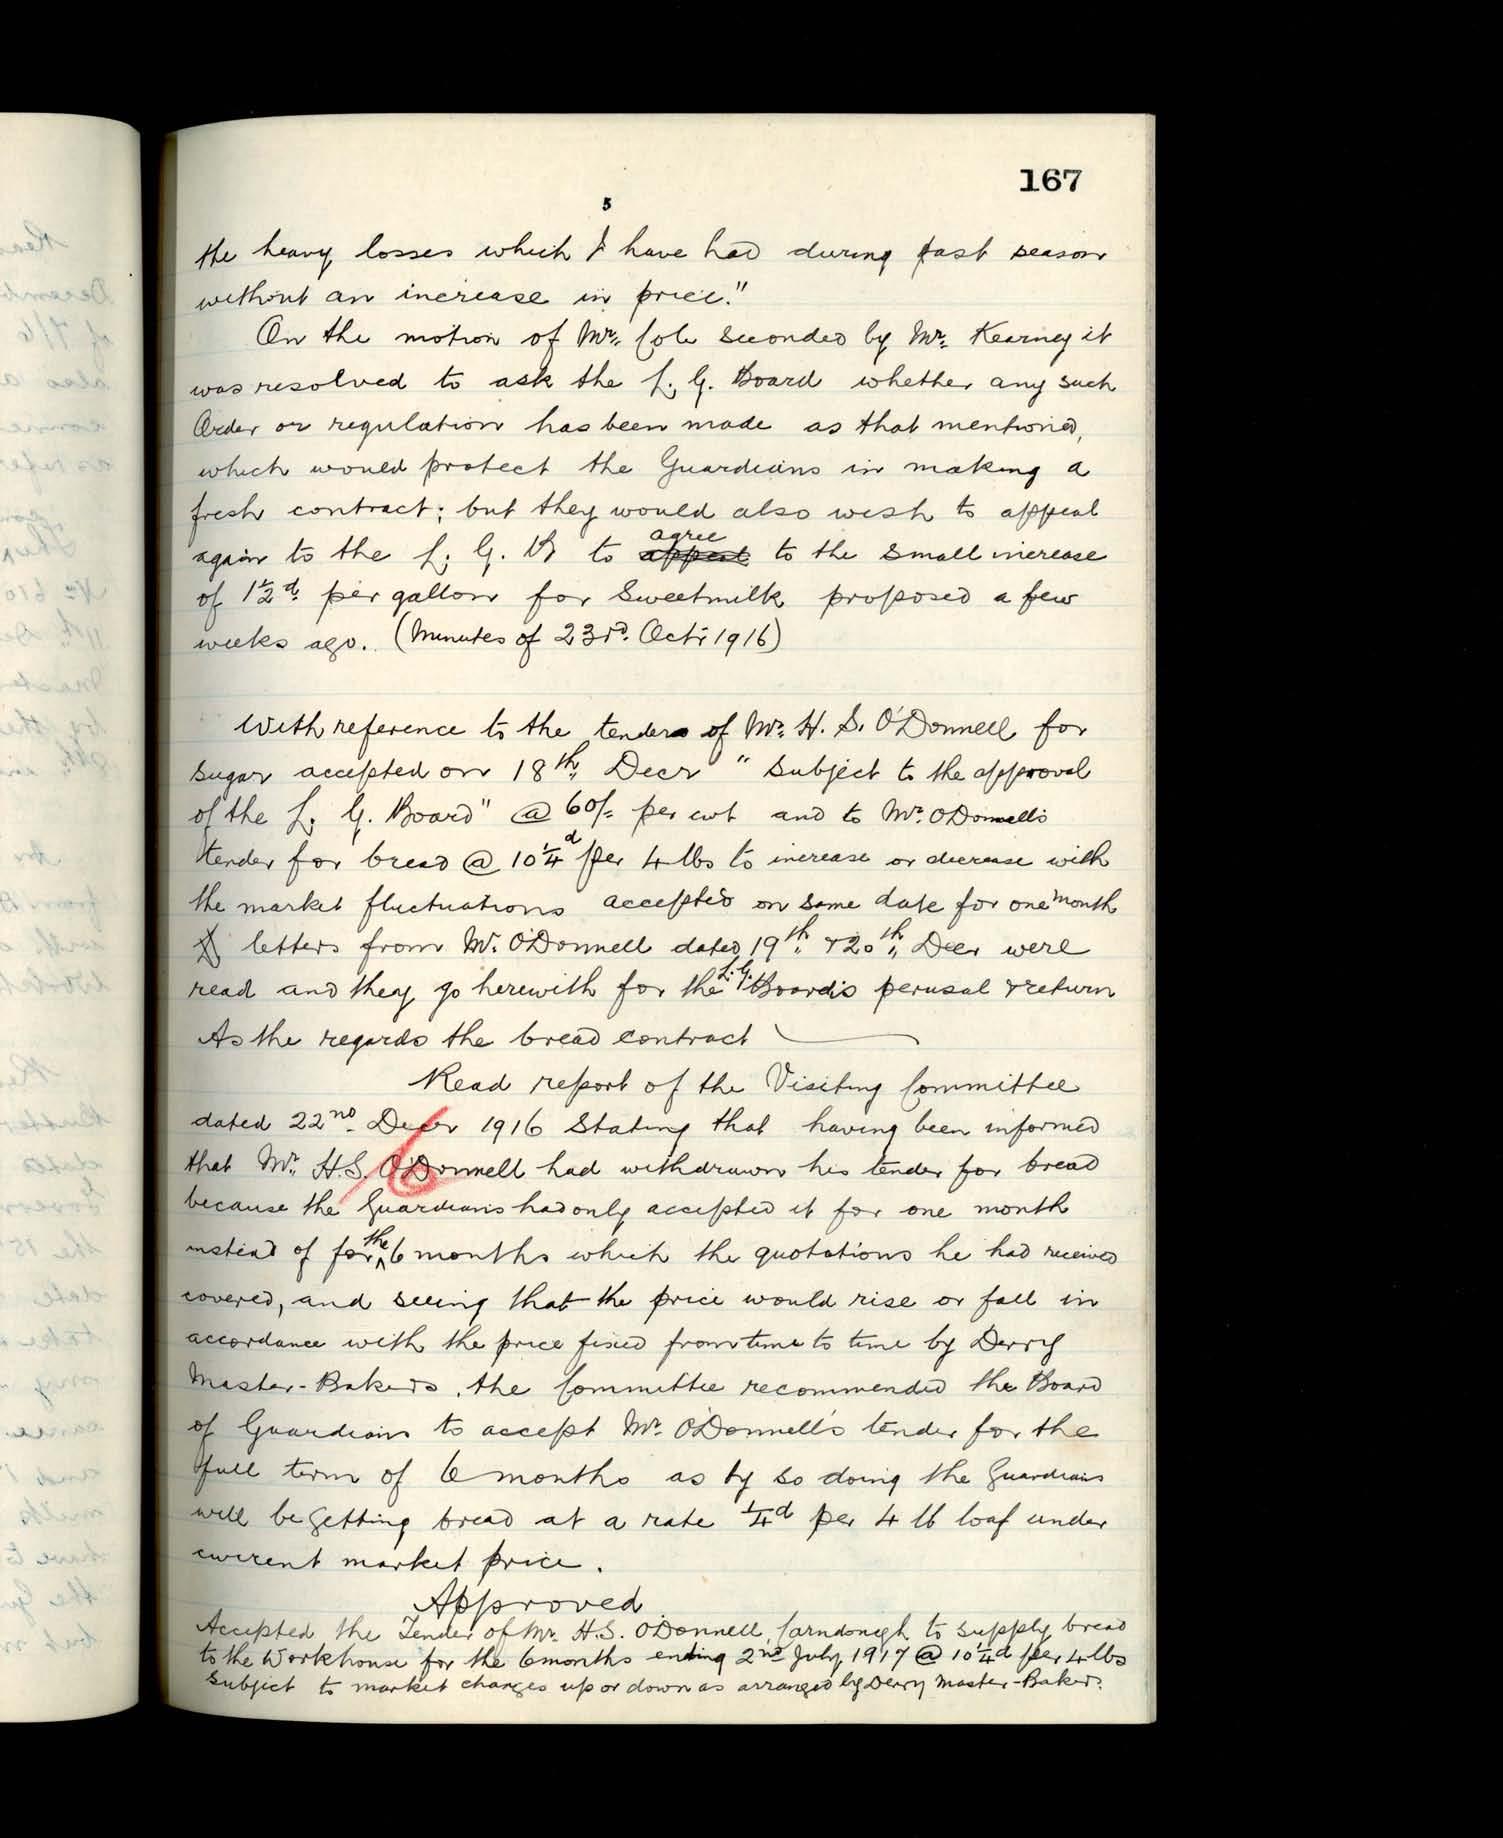 167
5
the heavy losses which I have had during past season
without an increase in price."
On the motion of Mr. Cole seconded by Mr. Kearney it
was resolved to ask the L. G. Board whether any such
Order or regulation has been made as that mentioned,
which would protect the Guardians in making a
fresh contract; but they would also wish to appeal
again to the L. G. B to agree ~~appeal~~ to the small increase
of 1½d. per gallon for Sweetmilk proposed a few
weeks ago. (Minutes of 23rd. Octr 1916)
With reference to the tender of Mr. H. S. O'Donnell for
sugar accepted on 18th. Decr "Subject to the approval
of the L. G. Board" @ 60/- per cwt and to Mr. O'Donnell's
tender for bread @ 10¼d per 4 lbs to increase or decrease with
the market fluctuations accepted on same date for one month
letters from Mr. O'Donnell dated 19th. & 20th. Decr were
read and they go herewith for the L.G. Board's perusal & return
As the regards the bread contract
Read report of the Visiting Committee
dated 22nd. Decr 1916 Stating that having been informed
that Mr. H.S. O'Donnell had withdrawn his tender for bread
because the Guardians had only accepted it for one month
instead of for the 6 months which the quotations he had received
covered, and seeing that the price would rise or fall in
accordance with the price fixed from time to time by Derry
Master-Bakers, the Committee recommended the Board
of Guardians to accept Mr. O'Donnell's tender for the
full term of 6 months as by so doing the Guardians
will be getting bread at a rate ¼d per 4 lb loaf under
current market price.
Approved
Accepted the Tender of Mr. H.S. O'Donnell, Carndonagh to supply bread
to the Workhouse for the 6 months ending 2nd July 1917 @ 10¼d per 4 lbs
subject to market changes up or down as arranged by Derry Master-Bakers.